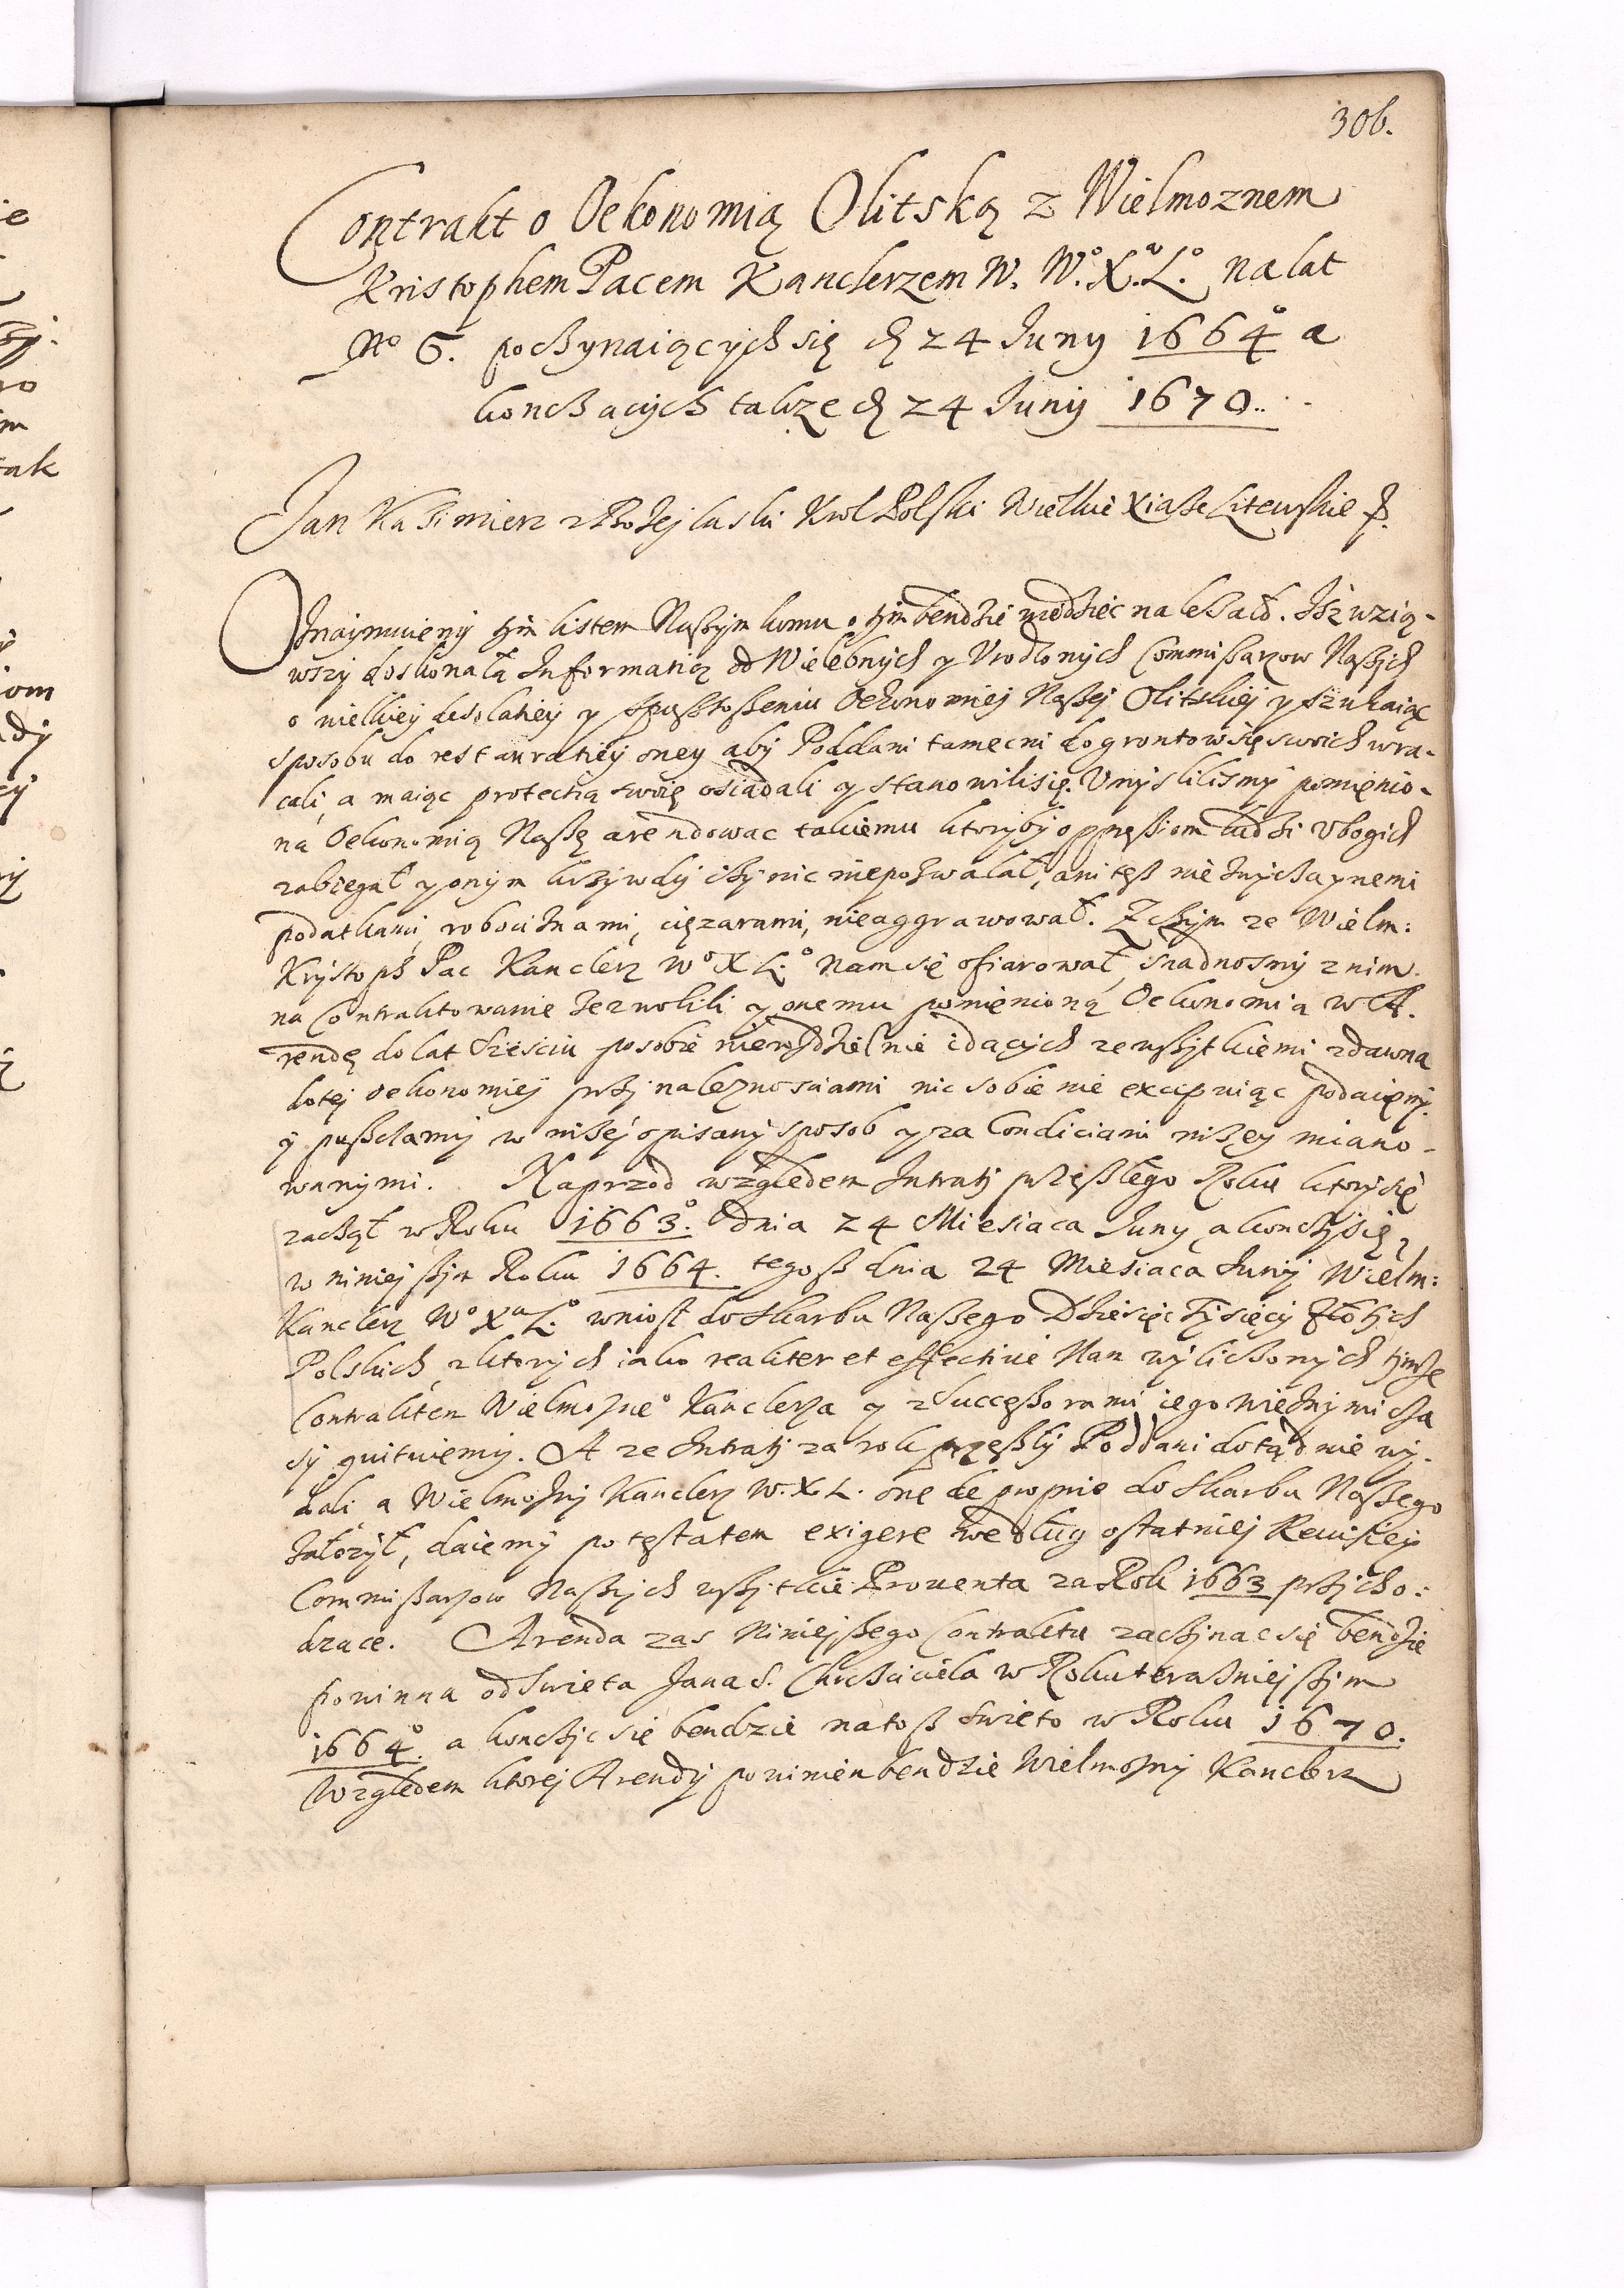 306.
Contrakt o Oekonomią Olitską z Wielmoznem
Kristophem Pacem Kanclerzem W. Wº. Xª. Lº. na lat
Nº 6. poczynaiących się d. 24 Juny 1664º a
konczacych takze d. 24 Juny 1670.
Jan Kasimierz z Bożej łaski Krol Polski Wielkie Xiąże Litewskie
Oznaymuiemy tym listem Naszym komu o tym bendzie wiedziec należało. Jż wzią-
wszy doskonałą Informatią od Wielebnych y Urodzonych Commissarzow Naszych
o wielkiey desolatiey y spustoszeniu Oekonomiej Naszej Olitskiej y szukaiąc
sposobu do restauratiey oney aby Poddani tameczni do grontow się swoich wra-
cali, a maiąc protectią swoię osiadali y stanowili się. Umyslilismy pomienio-
ną Oekonomią Naszę arendowac takiemu ktoryby oppressiom ludzi Ubogich
zabiegał y onym krzywdy czynic niepozwalał, ani tesz niezwyczaynemi
podatkami, robociznami, cięzarami, nieaggrawował. Z czym ze Wielm:
Krystoph Pac Kanclerz Wº X Lº. Nam się ofiarował, snadnosmy z nim
na Contraktowanie zezwolili y onemu pomienioną Oekonomią w A-
rendę do lat szesciu po sobie nierozdzielnie idących ze wszytkiemi zdawna
do tej oekonomiej przynaleznosciami nic sobie nie excipuiąc podaiemy
y puszczamy w niżej opisany sposob y za Condiciami niżey miano-
wanymi. Naprzod względem Intraty przeszłego Roku ktory się
zaczął w Roku 1663º. dnia 24 Miesiąca Juny a konczy się
w niniejszym Roku 1664. tegosz dnia 24 Miesiąca Juny Wielm:
Kanclerz Wº Xª Lº. wniosł do skarbu Naszego Dziesięc Tysięcy Złotych
Polskich, z ktorych iako realiter et effectiue Nam wyliczonych tymże
Contraktem Wielmożnº Kanclerza y z Successorami iego wiecznymi cza
sy quituiemy. A ze Intraty za rok przeszły Poddani dotąd nie wy-
dali, a Wielmożny Kanclerz W. X. L. onę de proprio do skarbu Naszego
założył, daiemy potestatem exigere według ostatniej Reuisiey
Commissarzow Naszych wszytkie Prouenta za Rok 1663 przycho:
dzace. Arenda zas Niniejszego Contraktu zaczynac się bendzie
powinna od swieta Jana S. Chrzciciela w Roku teraźniejszym
1664º. a konczyc się bendzie na tosz swieto w Roku 1670.
Względem ktorej Arendy powinien bendzie Wielmożny Kanclerz